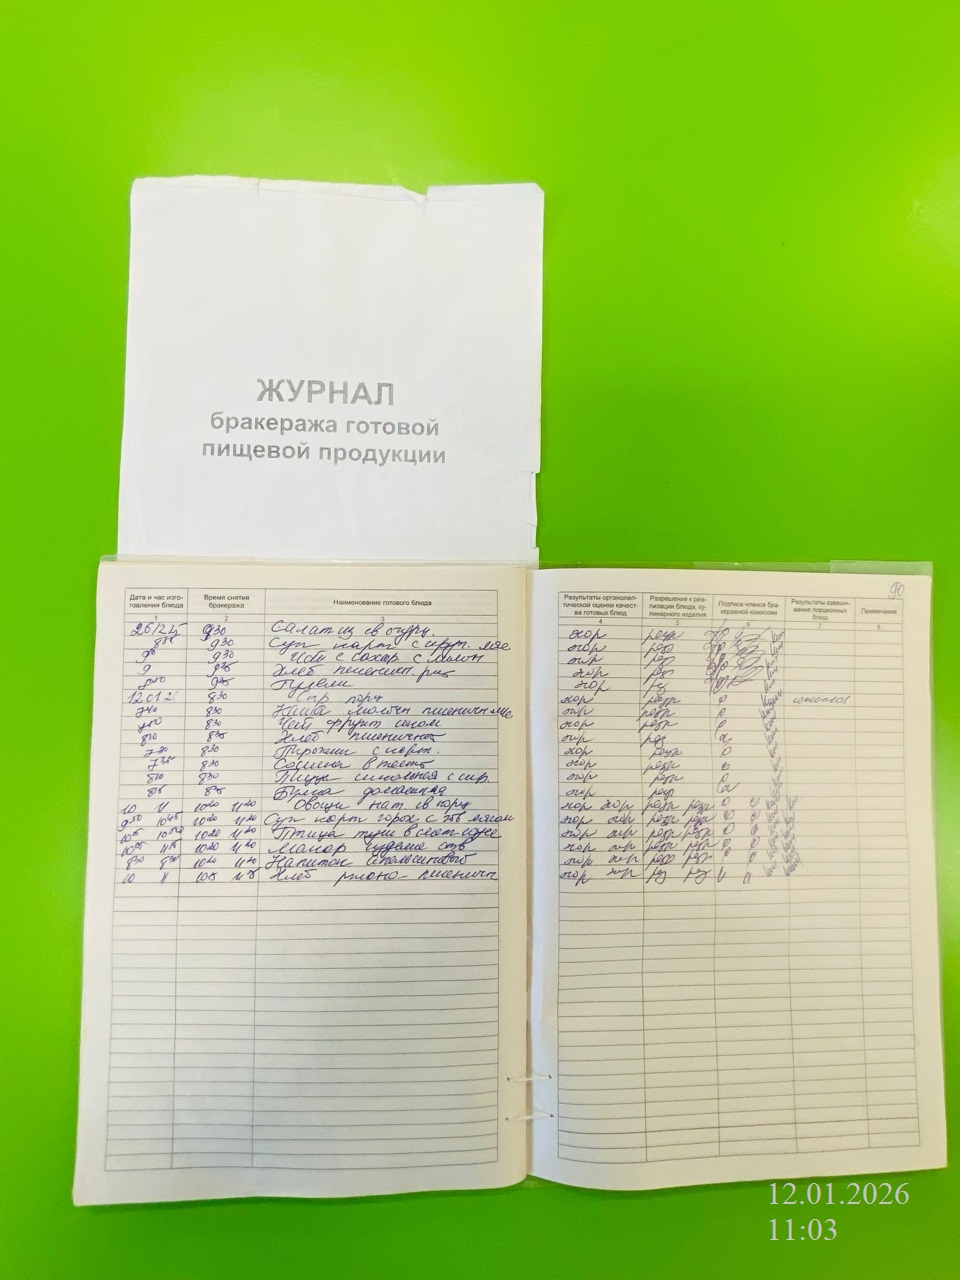 ЖУРНАЛ
бракеража готовой
пищевой продукции
Дата и час изго-
товления блюда
Время снятия
бракеража
Наименование готового блюда
1 2 3
26/12 9 30 Салат из св огурц.
9 30 Суп карт с круп. мяс
9 30 Чай с сахар. с молок
9 Хлеб пшеничн. рж
12.01.2 8 30 горц
7 40 8 30 Каша молочн пшеничная
8 30 Чай фрукт соком
8 00 Хлеб пшеничный
7 30 8 30 Пирожки с карт.
7 35 8 30 Сосиска в тесте
8 30 Пицца школьная с сыр.
Булка домашняя
10 11 10 20 11 20 Овощи нат. св горц
9 50 10 45 10 20 11 20 Суп карт горох с мясом
10 20 11 20 Птица туш в соус
10 20 11 20 Макар изделия отв
8 30 10 20 11 20 Напиток апельсиновый
10 11 Хлеб ржано-пшеничн
90
Результаты органолеп-
тической оценки качест-
ва готовых блюд
Разрешение к реа-
лизации блюда, ку-
линарного изделия
Подписи членов бра-
керажной комиссии
Результаты взвеши-
вания порционных
блюд
Примечание
4 5 6 7 8
хор разр
хор разр
хор
хор
хор
хор разр
хор разр
хор разр
хор раз
хор разр
хор разр
хор разр
хор разр
хор хор разр разр
хор хор разр разр
хор хор разр разр
хор хор разр разр
хор хор разр разр
хор хор раз раз
12.01.2026
11:03